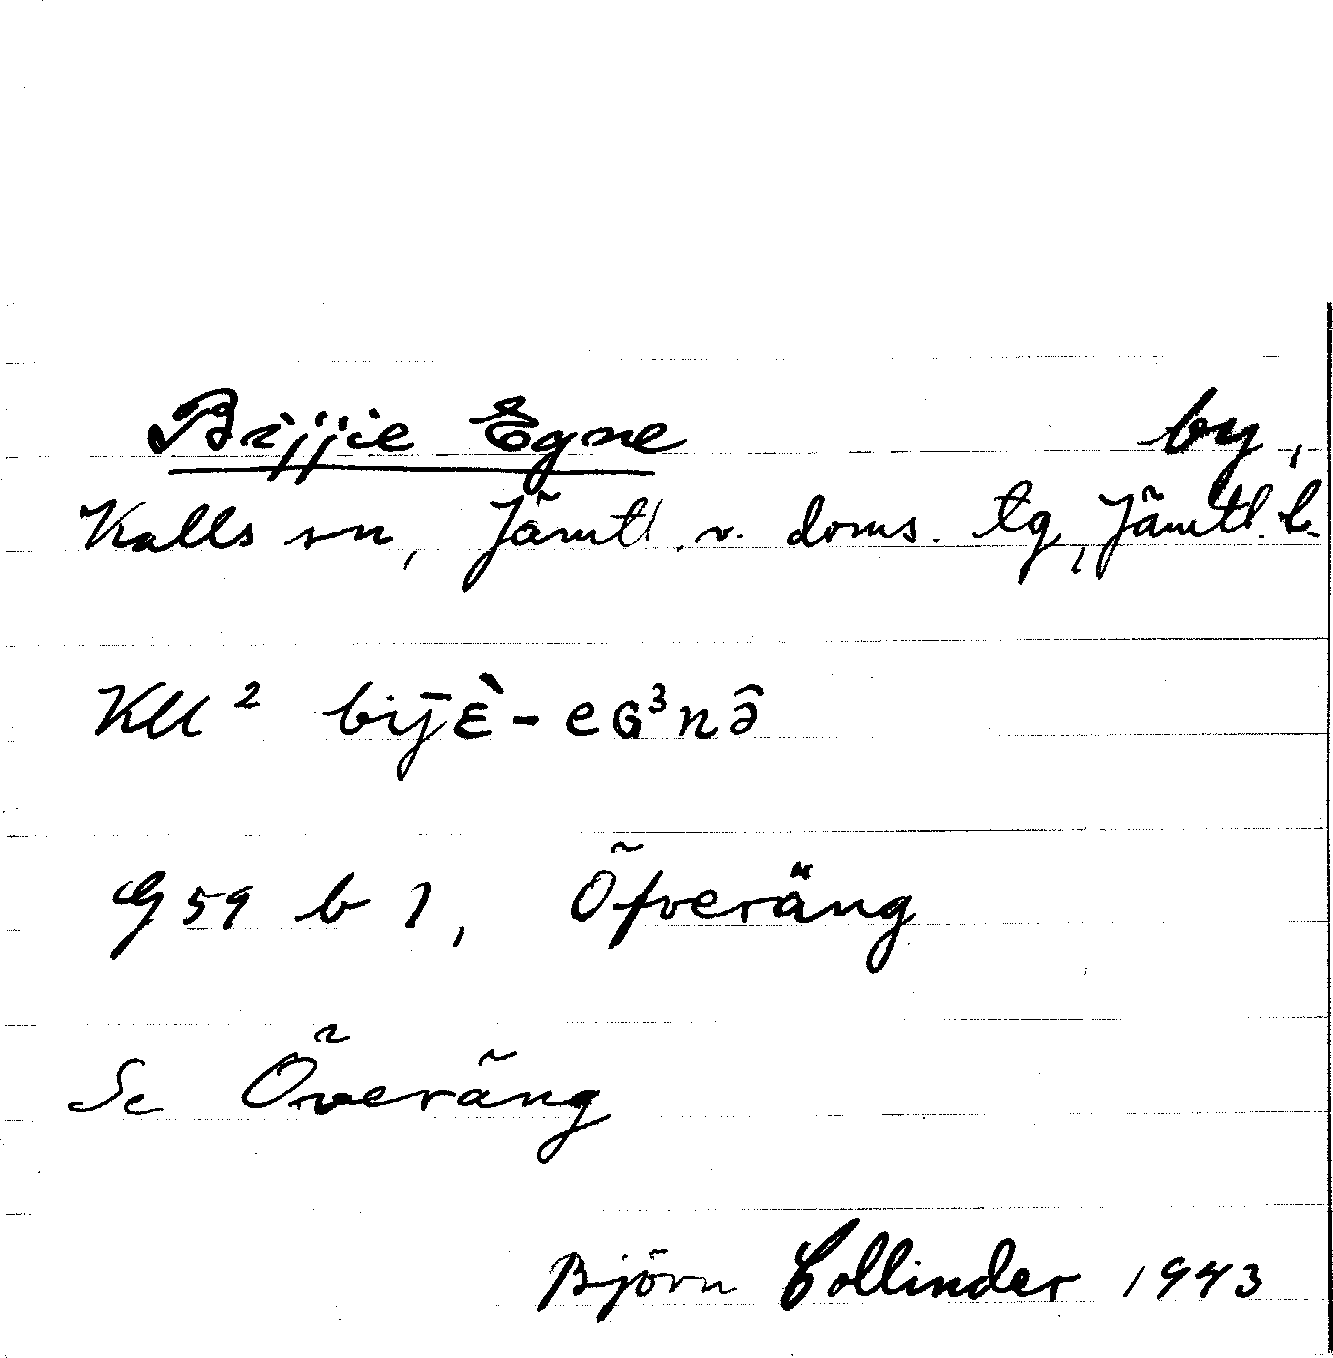 Bijjie Egne by,
Kalls sn, Jämtl. v. doms. tg, Jämtl. l.
Kll² bij̄ɛ̀ - eɢ³nə̂
G 59 b 1, Öfveräng
Se Överäng
Björn Collinder 1943